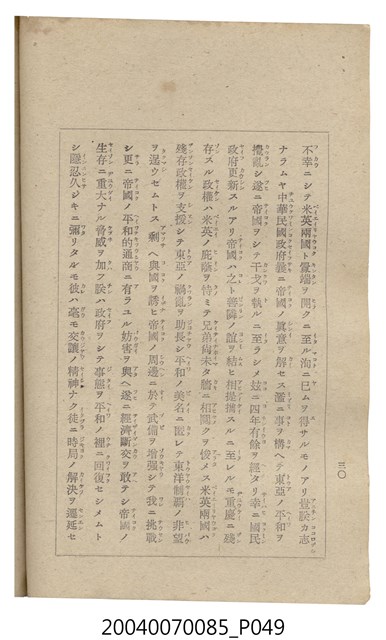 不幸ニシテ米英兩國ト釁端ヲ開クニ至ル洵ニ已ムヲ得サルモノアリ豈朕カ志
ナラムヤ中華民國政府曩ニ帝國ノ眞意ヲ解セス濫ニ事ヲ構ヘテ東亞ノ平和ヲ
攪亂シ遂ニ帝國ヲシテ干戈ヲ執ルニ至ラシメ玆ニ四年有餘ヲ經タリ幸ニ國民
政府更新スルアリ帝國ハ之ト善隣ノ誼ヲ結ヒ相提携スルニ至レルモ重慶ニ殘
存スル政權ハ米英ノ庇蔭ヲ恃ミテ兄弟尙未タ牆ニ相鬩クヲ悛メス米英兩國ハ
殘存政權ヲ支援シテ東亞ノ禍亂ヲ助長シ平和ノ美名ニ匿レテ東洋制覇ノ非望
ヲ逞ウセムトス剩ヘ與國ヲ誘ヒ帝國ノ周邊ニ於テ武備ヲ增强シテ我ニ挑戰
シ更ニ帝國ノ平和的通商ニ有ラユル妨害ヲ與ヘ遂ニ經濟斷交ヲ敢テシ帝國ノ
生存ニ重大ナル脅威ヲ加フ朕ハ政府ヲシテ事態ヲ平和ノ裡ニ回復セシメムト
シ隱忍久シキニ彌リタルモ彼ハ毫モ交讓ノ精神ナク徒ニ時局ノ解決ヲ遷延セ
三〇
20040070085_P049